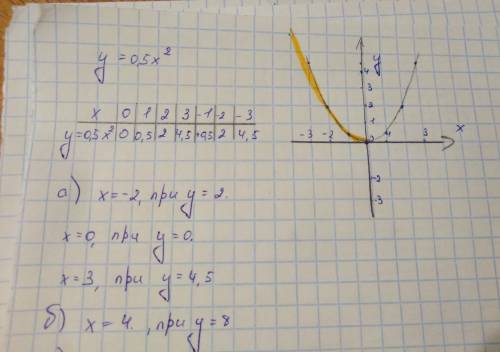 y = 0,5x²
x 0 1 2 3 -1 -2 -3
y=0,5x² 0 0,5 2 4,5 0,5 2 4,5
а) x=-2, при y=2.
x=0, при y=0.
x=3, при y=4,5
б) x=4. , при y=8
y
4
3
2
1
-3 -2 0 3 x
-2
-3